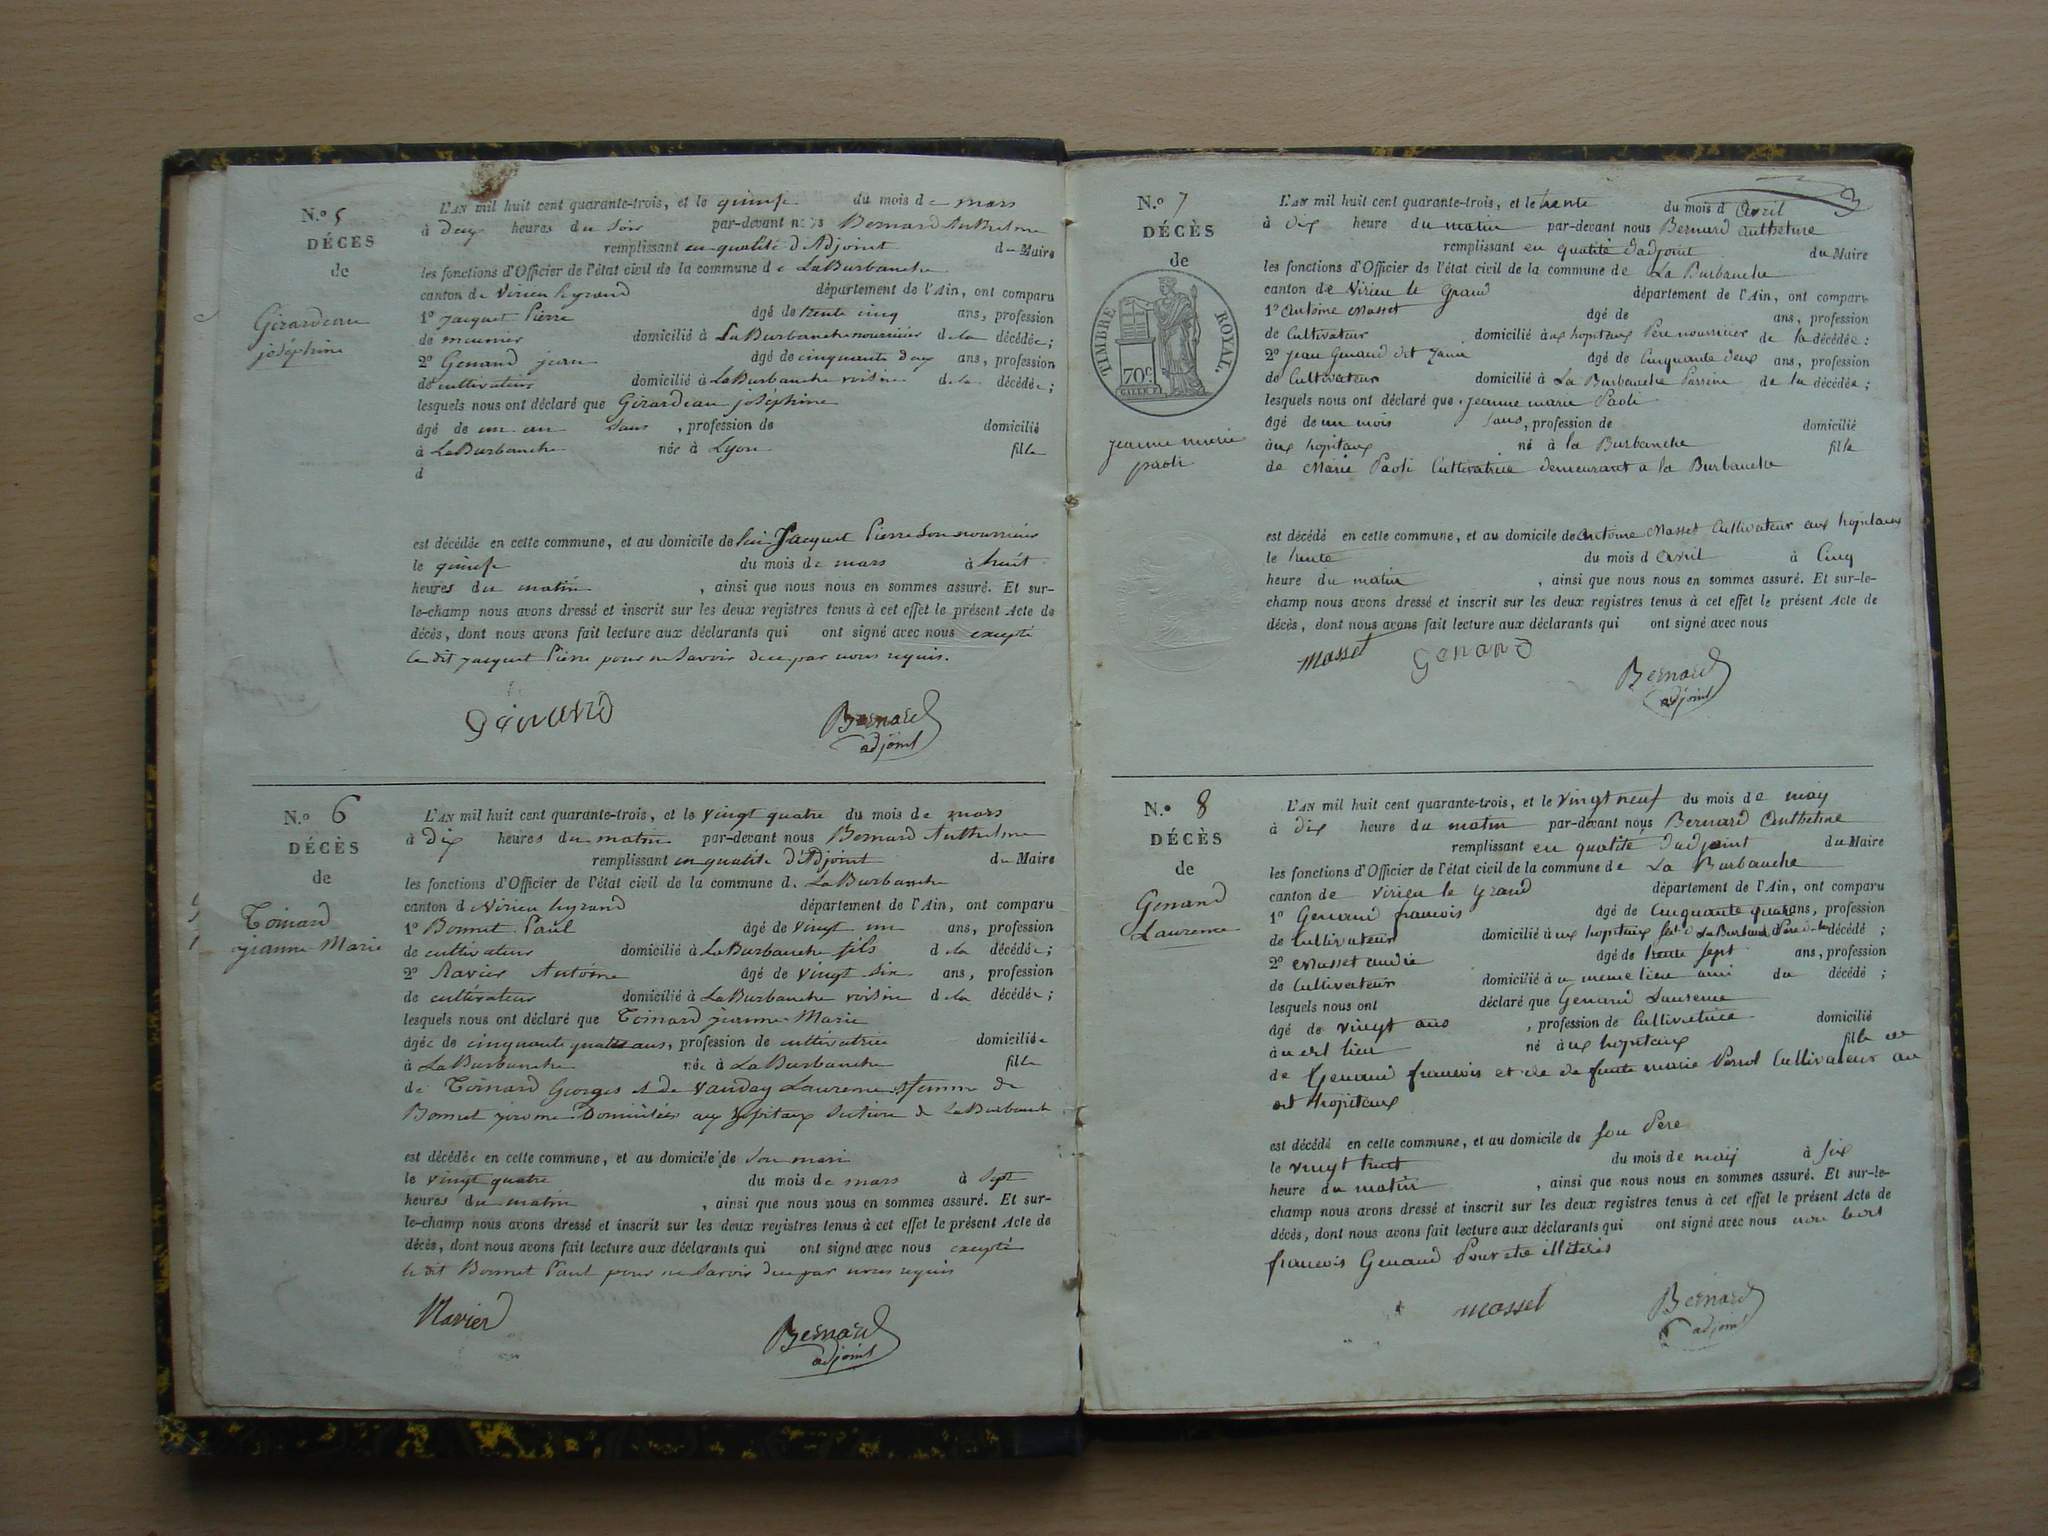 N.o 5
DÉCÈS
de
Girardeau
joséphine
L'AN mil huit cent quarante-trois, et le quinse du mois de mars
à deux heures du soir par-devant nous Bernard Anthelme
remplissant en qualité d'Adjoint du Maire
les fonctions d'Officier de l'état civil de la commune de LaBurbanche
canton de Virieu legrand département de l'Ain, ont comparu
1o jacquet Pierre âgé de trente cinq ans, profession
de meunier domicilié à LaBurbanche nourricier de la décédée;
2o Genand jean âgé de cinquante deux ans, profession
de cultivateur domicilié à LaBurbanche voisin de la décédée;
lesquels nous ont déclaré que Girardeau joséphine
âgé de un an sans, profession de domicilié
à LaBurbanche née à Lyon fille
d
est décédée en cette commune, et au domicile de lui Jacquet Pierre son nourricier
le quinse du mois de mars à huit
heures du matin, ainsi que nous nous en sommes assuré. Et sur-
le-champ nous avons dressé et inscrit sur les deux registres tenus à cet effet le présent Acte de
décès, dont nous avons fait lecture aux déclarants qui ont signé avec nous excepté
le dit jacquet Pierre pour ne savoir de ce par nous requis.
Génand Bernard
adjoint
N.o 6
DÉCÈS
de
Toinard
jeanne Marie
L'AN mil huit cent quarante-trois, et le vingt quatre du mois de mars
à dix heures du matin par-devant nous Bernard Anthelme
remplissant en qualité d'Adjoint du Maire
les fonctions d'Officier de l'état civil de la commune de LaBurbanche
canton d Virieu legrand département de l'Ain, ont comparu
1o Bonnet Paul âgé de vingt un ans, profession
de cultivateur domicilié à LaBurbanche fils d la décédée;
2o Ravier Antoine âgé de vingt six ans, profession
de cultivateur domicilié à LaBurbanche voisin d la décédée;
lesquels nous ont déclaré que Toinard jeanne Marie
âgée de cinquante quatre ans, profession de cultivatrice domiciliée
à LaBurbanche née à LaBurbanche fille
de Toinard Georges & de Vauday Laurence femme de
Bonnet jerome Domiciliés aux hopitaux section de LaBurbanche
est décédée en cette commune, et au domicile de son mari
le vingt quatre du mois de mars à sept
heures du matin, ainsi que nous nous en sommes assuré. Et sur-
le-champ nous avons dressé et inscrit sur les deux registres tenus à cet effet le présent Acte de
décès, dont nous avons fait lecture aux déclarants qui ont signé avec nous excepté
le dit Bonnet Paul pour ne savoir de ce par nous requis
Ravier Bernard
adjoint
N.o 7
DÉCÈS
de
TIMBRE ROYAL.
70c
jeanne marie
paoli
3
L'AN mil huit cent quarante-trois, et le trente du mois d avril
à dix heure du matin par-devant nous Bernard Anthelme
remplissant en qualité dadjoint du Maire
les fonctions d'Officier de l'état civil de la commune de La Burbanche
canton de Virieu le Grand département de l'Ain, ont comparu
1o Antoine Masset âgé de ans, profession
de Cultivateur domicilié aux hopitaux Père nourricier de la décédée:
2o jean Genand dit âgé de Cinquante deux ans, profession
de Cultivateur domicilié à La Burbanche de la décédée;
lesquels nous ont déclaré que jeanne marie Paoli
âgé de un mois sans, profession de domicilié
aux hopitaux né à la Burbanche fille
de Marie Paoli Cultivatrice demeurant a la Burbanche
est décédé en cette commune, et au domicile de Antoine Masset Cultivateur aux hopitaux
le trente du mois d avril à Cinq
heure du matin, ainsi que nous nous en sommes assuré. Et sur-le-
champ nous avons dressé et inscrit sur les deux registres tenus à cet effet le présent Acte de
décès, dont nous avons fait lecture aux déclarants qui ont signé avec nous
masset Genand Bernard
adjoint
N.o 8
DÉCÈS
de
Genand
Laurence
L'AN mil huit cent quarante-trois, et le vingt neuf du mois de may
à dix heure du matin par-devant nous Bernard Anthelme
remplissant en qualité dadjoint du Maire
les fonctions d'Officier de l'état civil de la commune de La Burbanche
canton de Virieu le Grand département de l'Ain, ont comparu
1o Genand francois âgé de Cinquante quatre ans, profession
de Cultivateur domicilié aux hopitaux La Burbanche Père de la décédé;
2o Masset andré âgé de trente sept ans, profession
de Cultivateur domicilié à u meme lieu ami du décédé;
lesquels nous ont déclaré que Genand Laurence
âgé de vingt ans, profession de Cultivatrice domicilié
à u dit lieu né aux hopitaux fille de
de Genand francois et de defunte marie Cultivateur au
dit hopitaux
est décédé en cette commune, et au domicile de son Père
le vingt huit du mois de may à six
heure du matin, ainsi que nous nous en sommes assuré. Et sur-le-
champ nous avons dressé et inscrit sur les deux registres tenus à cet effet le présent Acte de
décès, dont nous avons fait lecture aux déclarants qui ont signé avec nous
francois Genand Pour
masset Bernard
adjoint